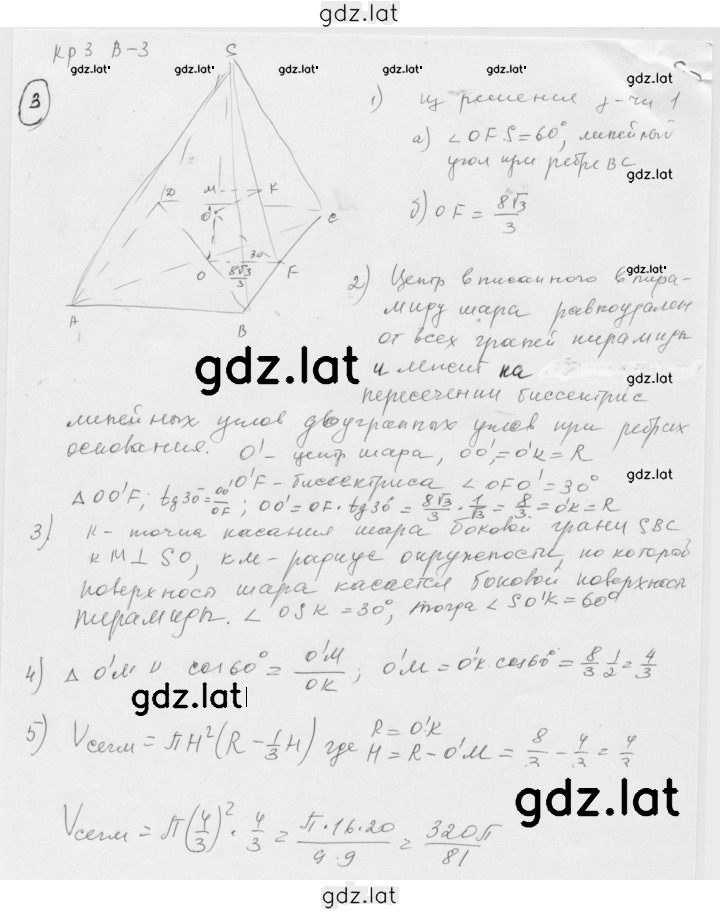 gdz.lat
кр 3 В-3
gdz.lat gdz.lat gdz.lat gdz.lat gdz.lat
3
S
D
M
K
O'
C
O
30
8√3/3
F
A
B
1) из решения з-чи 1
а) ∠OFS = 60°, линейный
угол при ребре BC
gdz.lat gdz.lat gdz.lat gdz.lat
б) OF = 8√3/3
gdz.lat
2) Центр вписанного в пира-
миду шара равноудален
от всех граней пирамиды
и лежит на
gdz.lat
gdz.lat
пересечении биссектрис
линейных углов двугранных углов при ребрах
основания. O' - центр шара, OO' = O'K = R
O'F - биссектриса ∠OFO' = 30°
gdz.lat
△ OO'F; tg30 = OO'/OF; OO' = OF · tg30° = 8√3/3 · 1/√3 = 8/3 = O'K = R
3) K - точка касания шара боковой грани SBC
KM ⊥ SO, KM - радиус окружности, по которой
поверхность шара касается боковой поверхности
пирамиды. ∠OSK = 30°, тогда ∠SO'K = 60°
4) △ O'MK cos60° = O'M/OK; O'M = O'K · cos60° = 8/3 · 1/2 = 4/3
gdz.lat
5) Vсегм = πH²(R - 1/3H) где R = O'K
H = R - O'M = 8/3 - 4/3 = 4/3
gdz.lat
Vсегм = π(4/3)² · 4/3 = π·16·20/9·9 = 320π/81
gdz.lat